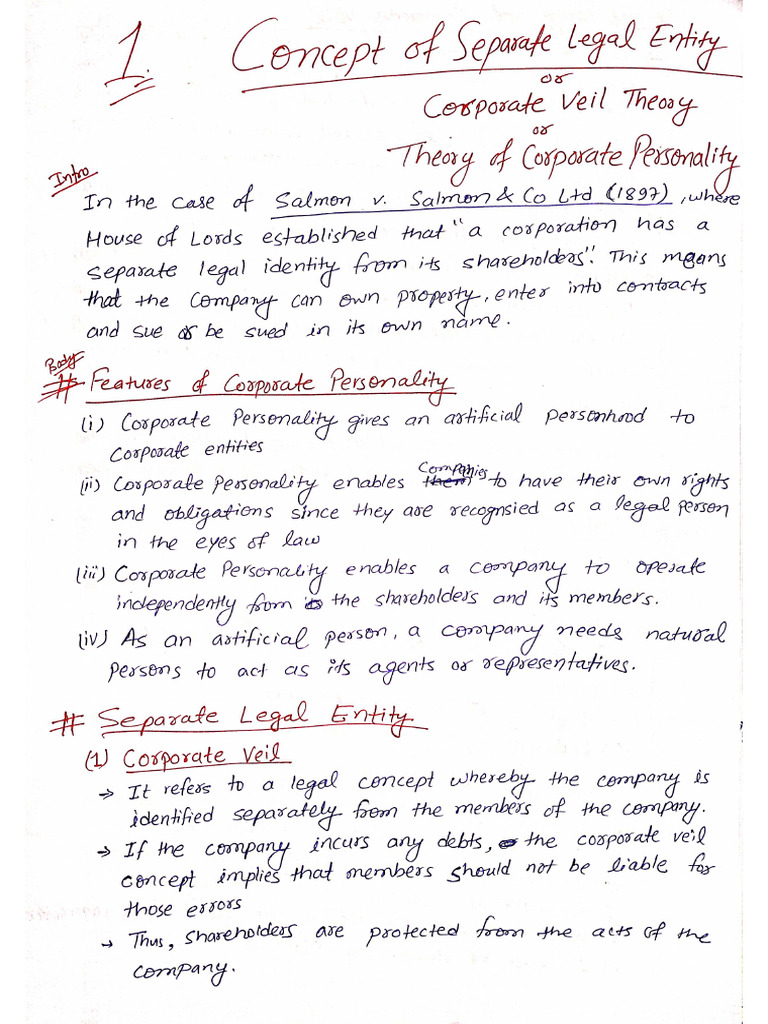 1. Concept of Separate Legal Entity
or
Corporate Veil Theory
or
Theory of Corporate Personality
Intro
In the case of Salmon v. Salmon & Co Ltd (1897), where
House of Lords established that "a corporation has a
separate legal identity from its shareholders". This means
that the company can own property, enter into contracts
and sue or be sued in its own name.
Body
# Features of Corporate Personality
(i) Corporate Personality gives an artificial personhood to
corporate entities
(ii) Corporate Personality enables Companies to have their own rights
and obligations since they are recognsied as a legal person
in the eyes of law
(iii) Corporate Personality enables a company to operate
independently from the shareholders and its members.
(iv) As an artificial person, a company needs natural
persons to act as its agents or representatives.
# Separate Legal Entity.
(1) Corporate Veil
→ It refers to a legal concept whereby the company is
identified separately from the members of the company.
→ If the company incurs any debts, the corporate veil
concept implies that members should not be liable for
those errors
→ Thus, shareholders are protected from the acts of the
company.